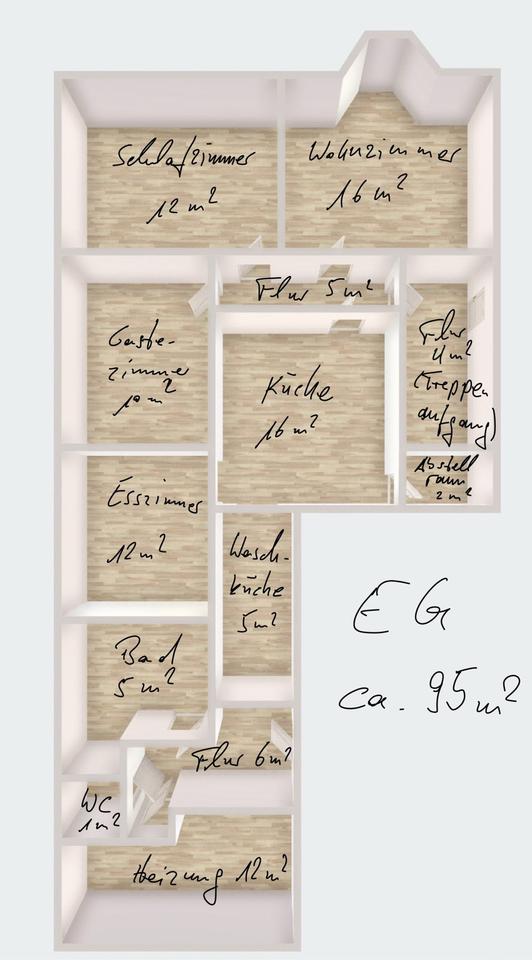 Schlafzimmer
12 m²
Wohnzimmer
16 m²
Flur 5 m²
Gäste-
zimmer
10 m²
Küche
16 m²
Flur
4 m²
(Treppen
aufgang)
Abstell
raum
2 m²
Esszimmer
12 m²
Wasch-
küche
5 m²
EG
ca. 95 m²
Bad
5 m²
Flur 6 m²
WC
1 m²
Heizung 12 m²